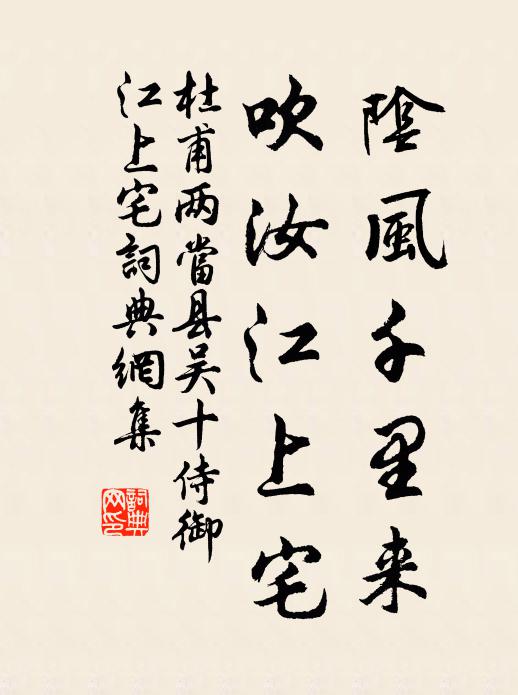 陰風千里来
吹汝江上宅
杜甫两當县吴十侍御
江上宅詞典網集
詞典
网印